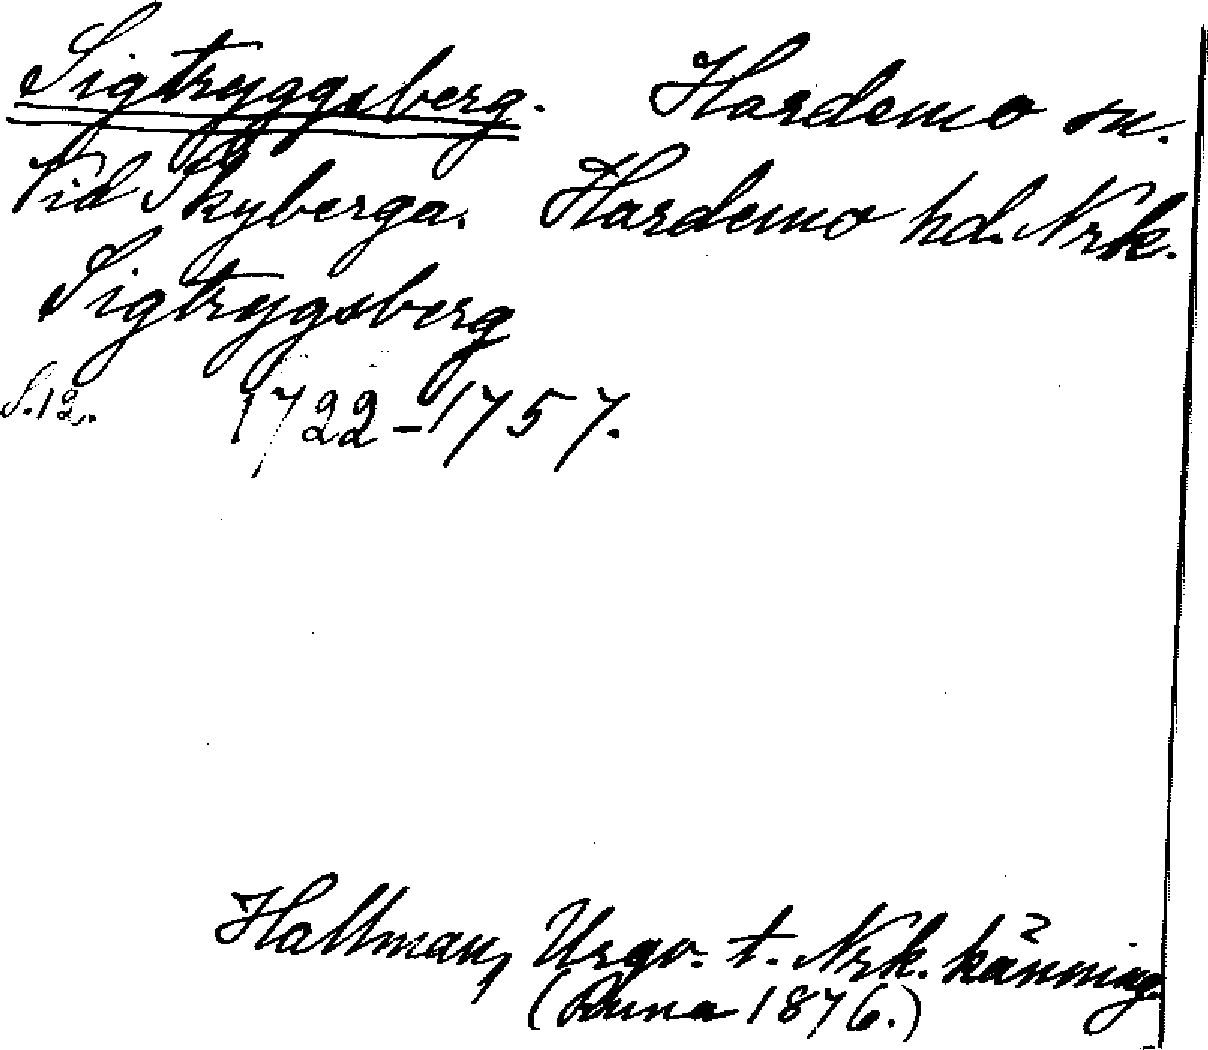 Sigtryggsberg. Hardemo sn.
Vid Skyberga. Hardemo hd. Nrk.
Sigtrygsberg
S. 12. 1722-1757.
Hallman, Urgv. t. Nrk. känning.
(Runa 1876.)